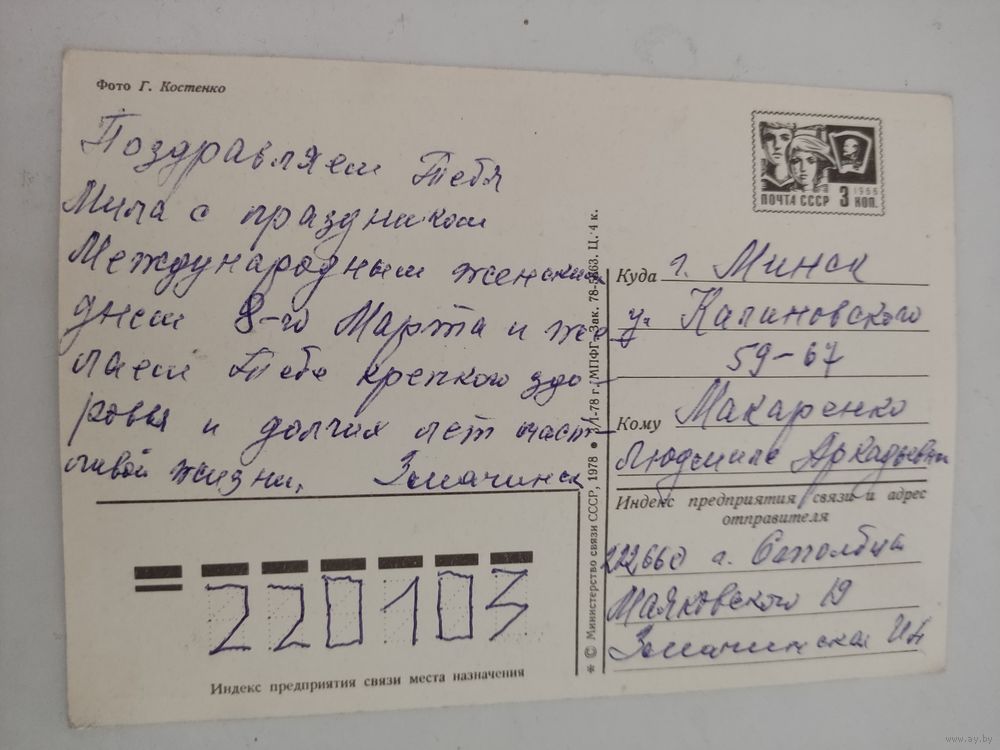 Фото Г. Костенко
Поздравляем Тебя
Мила с праздником
Международным женским
днем 8-го Марта и же-
лаем Тебе крепкого здо-
ровья и долгих лет счаст-
ливой жизни,
ПОЧТА СССР 3 КОП. 1966
Куда г. Минск
ул. Калиновского
59-67
Кому Макаренко
Людмиле Аркадьевне
Индекс предприятия связи и адрес
отправителя
222660 г. Столбцы
Маяковского 19
220103
Индекс предприятия связи места назначения
* © Министерство связи СССР, 1978 ● 3/I-78 г. МПФГ. Зак. 78-5663. Ц. 4 к.
www.ay.by